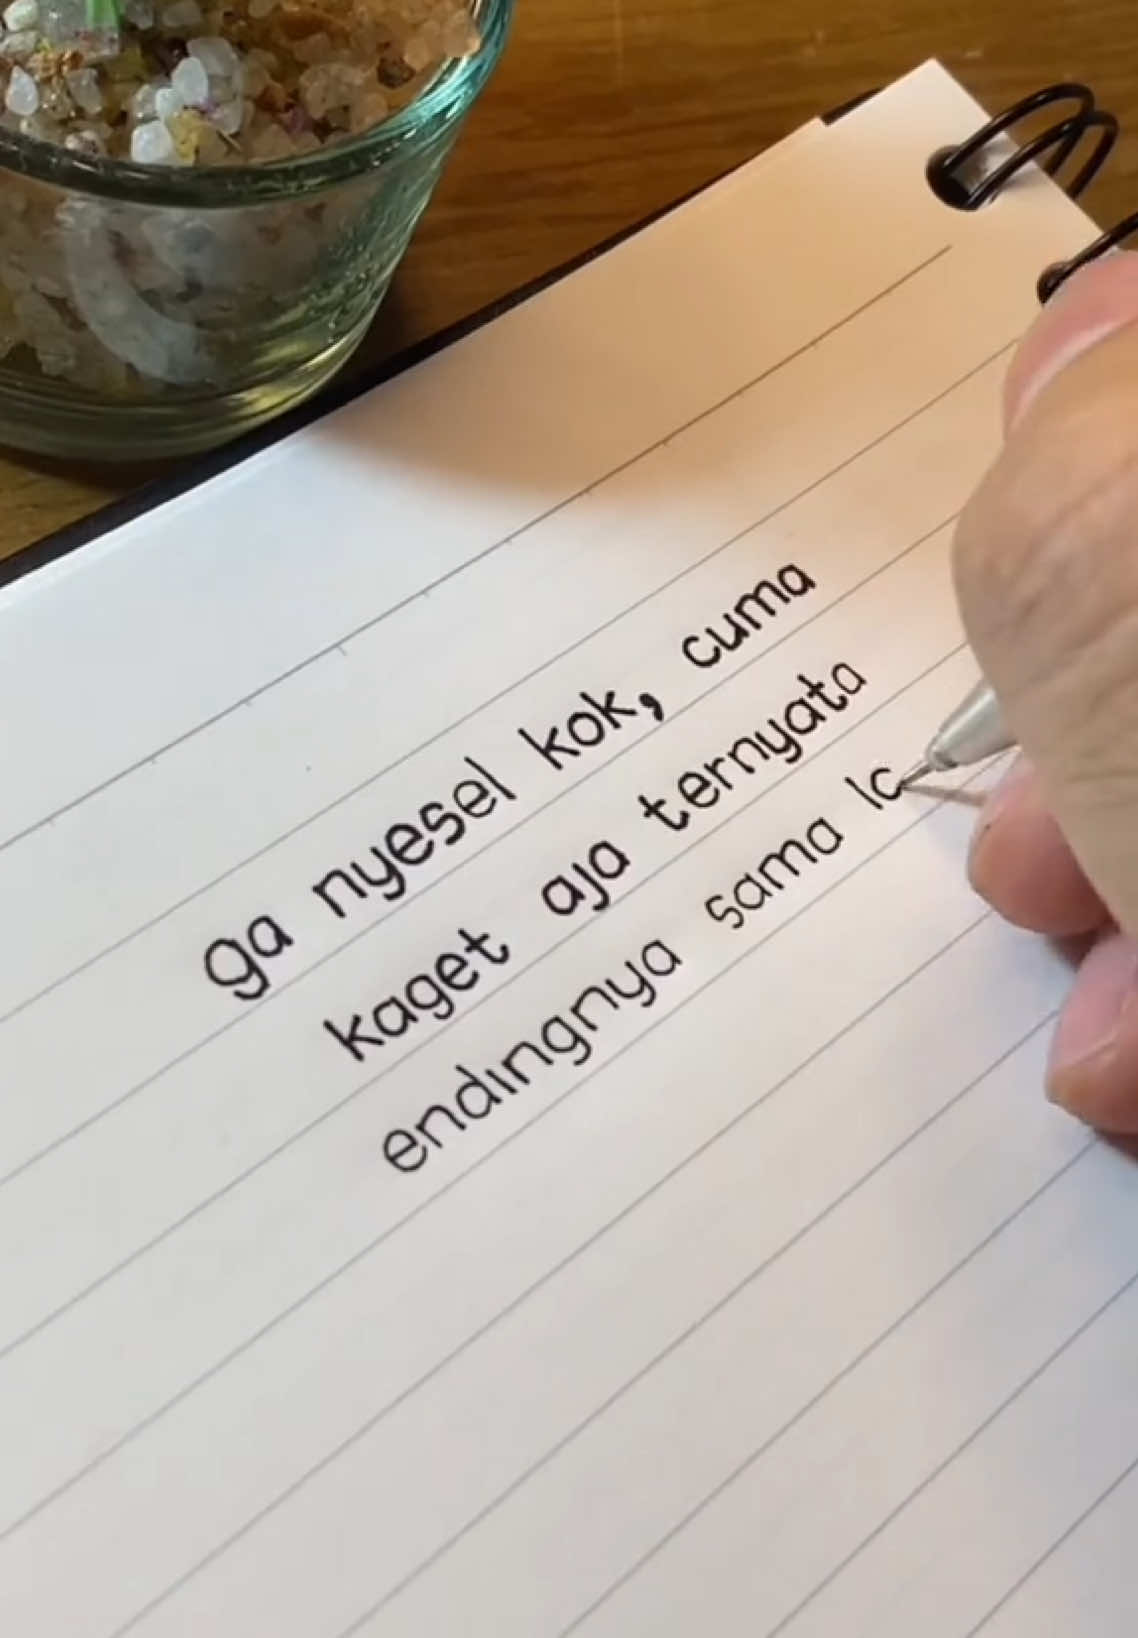 ga nyesel kok, cuma
kaget aja ternyata
endingnya sama